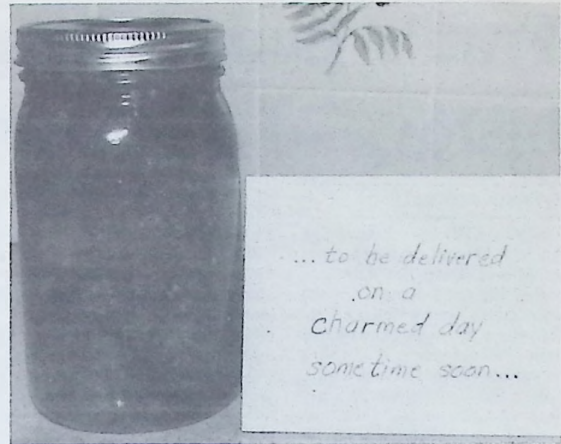 ...to be delivered
on a
charmed day
sometime soon...